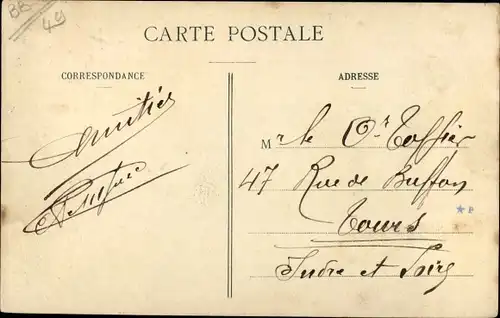 BB
49
CARTE POSTALE
CORRESPONDANCE
ADRESSE
Amitiés
Mr le Dr Toffier
47 Rue de Buffon
Tours
Indre et Loire